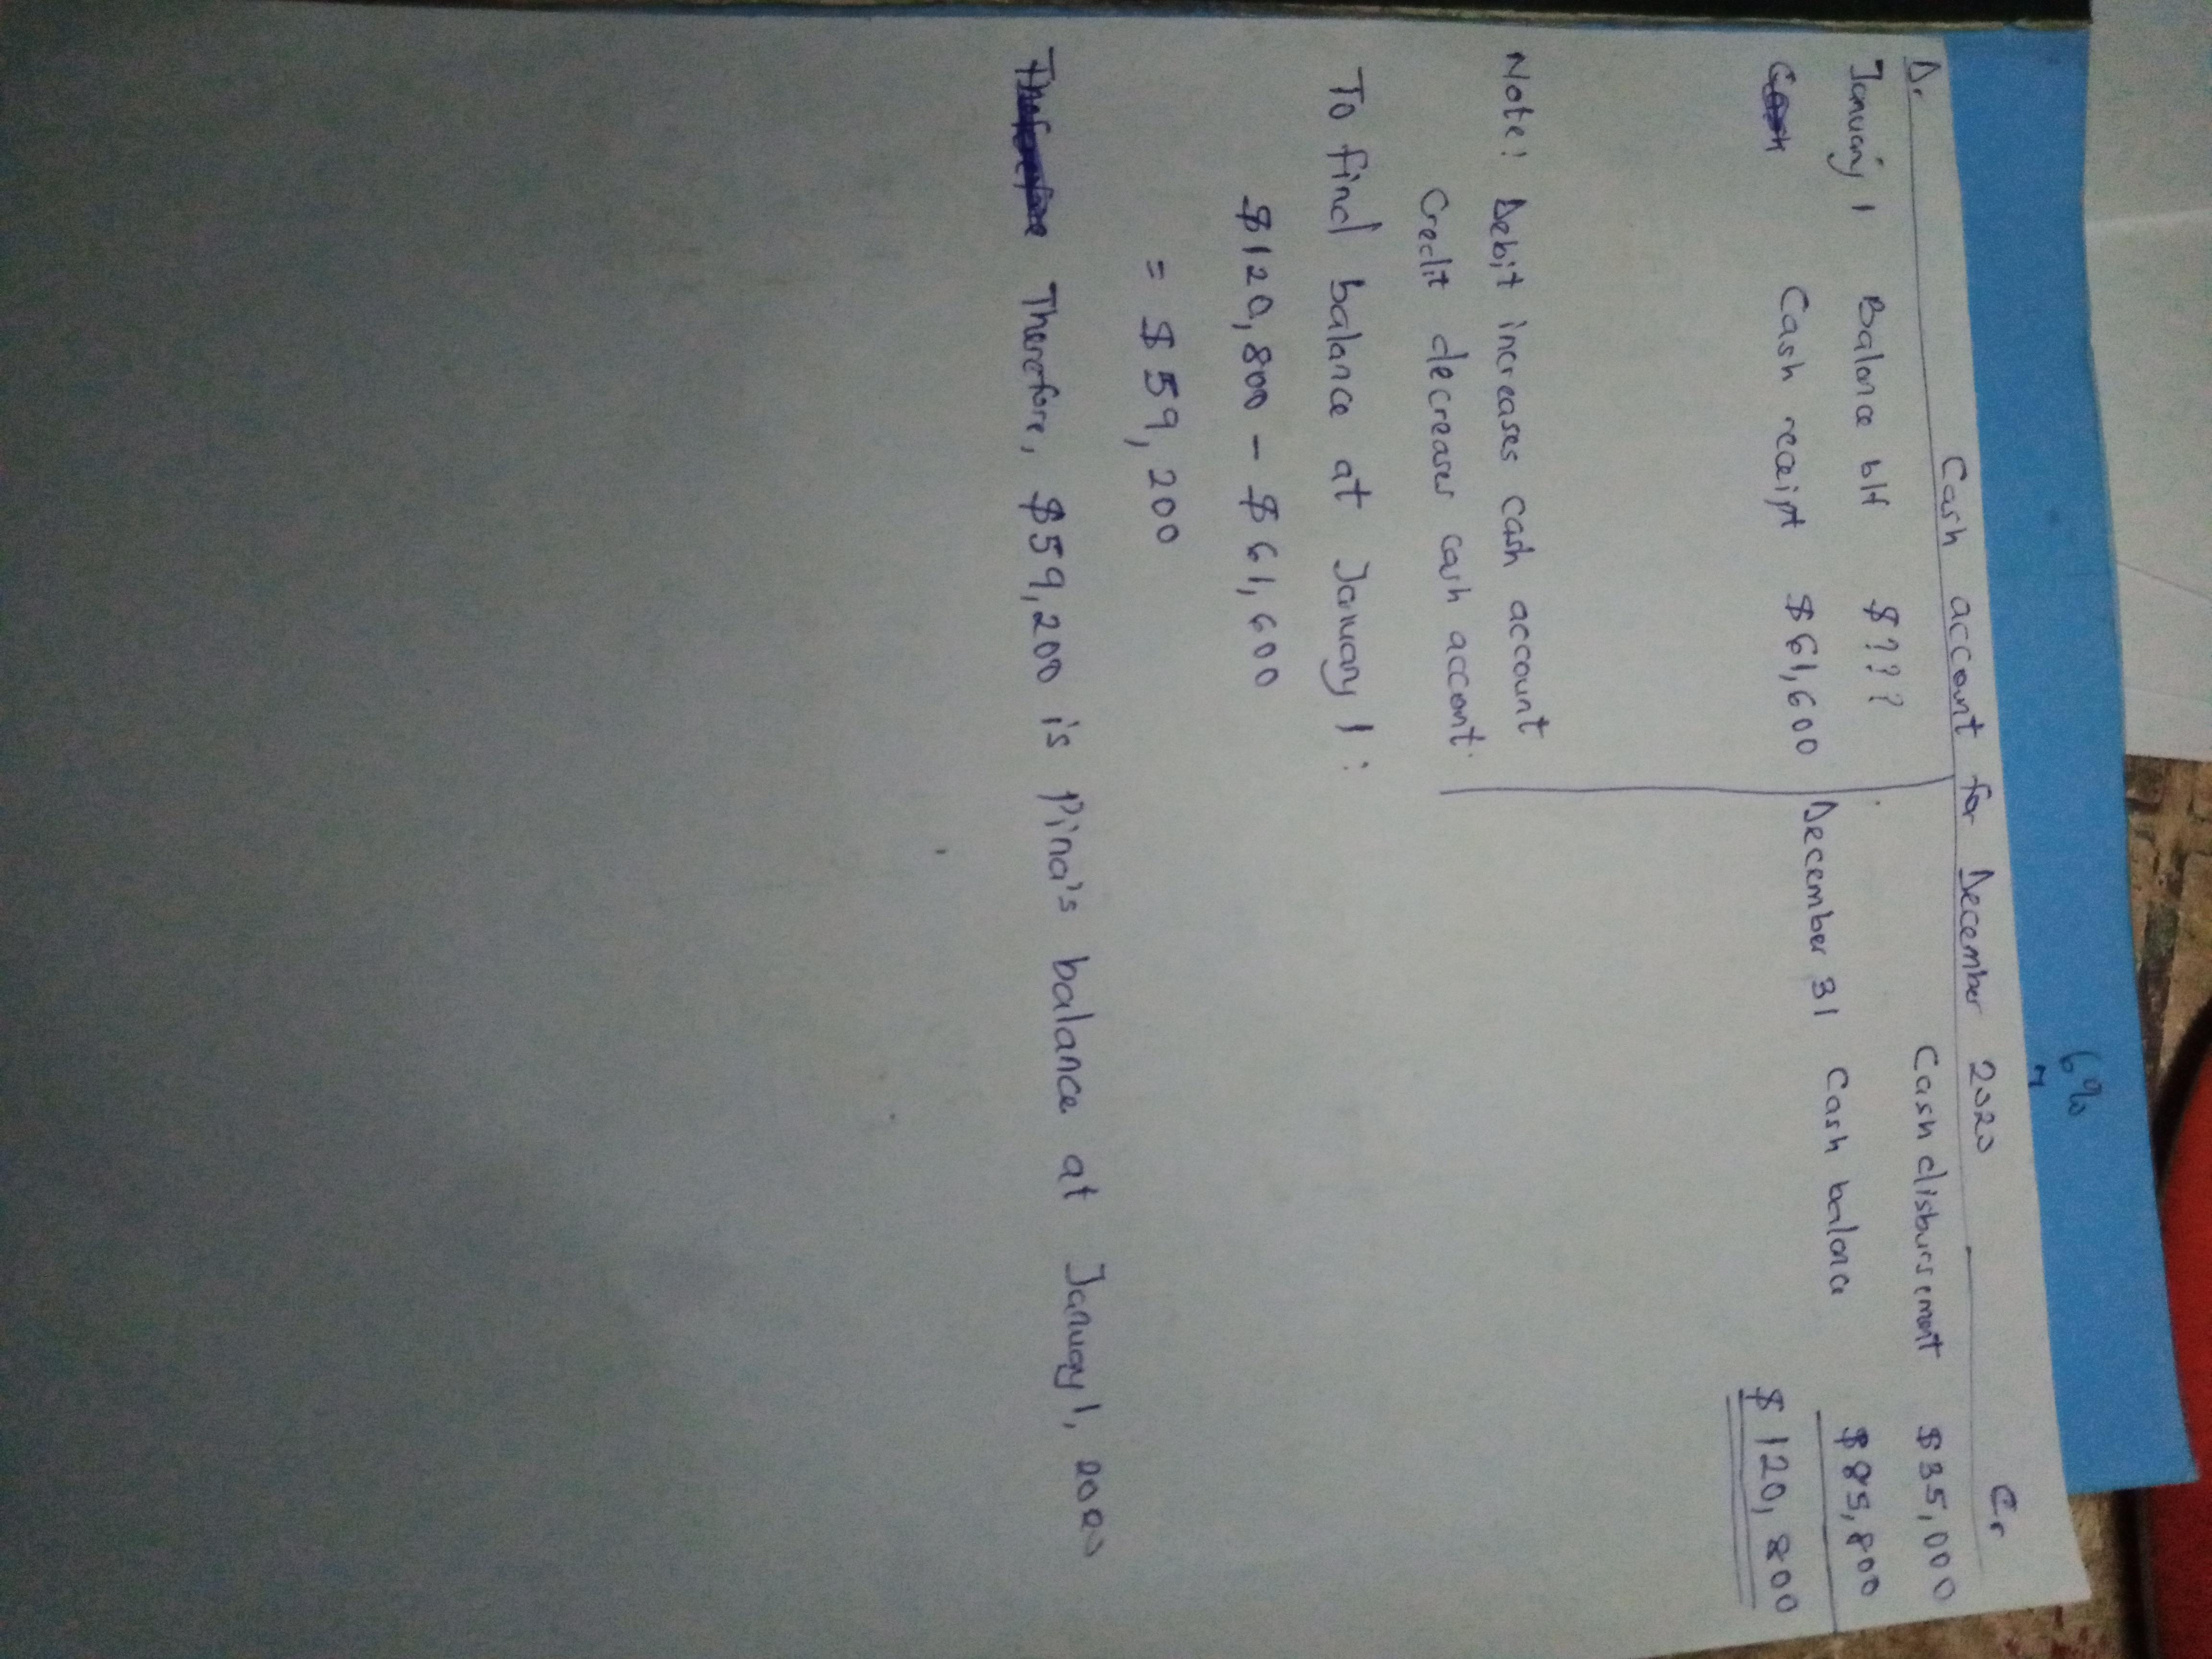 6%
7
Cash account for December 2020
Dr Cr
January 1 Balance b/f $??? Cash disbursement $35,000
Cash receipt $61,600 December 31 Cash balance $85,800
$120,800
Note: Debit increases cash account
Credit decreases cash account.
To find balance at January 1:
$120,800 - $61,600
= $59,200
Therefore, $59,200 is Pina's balance at January 1, 2020